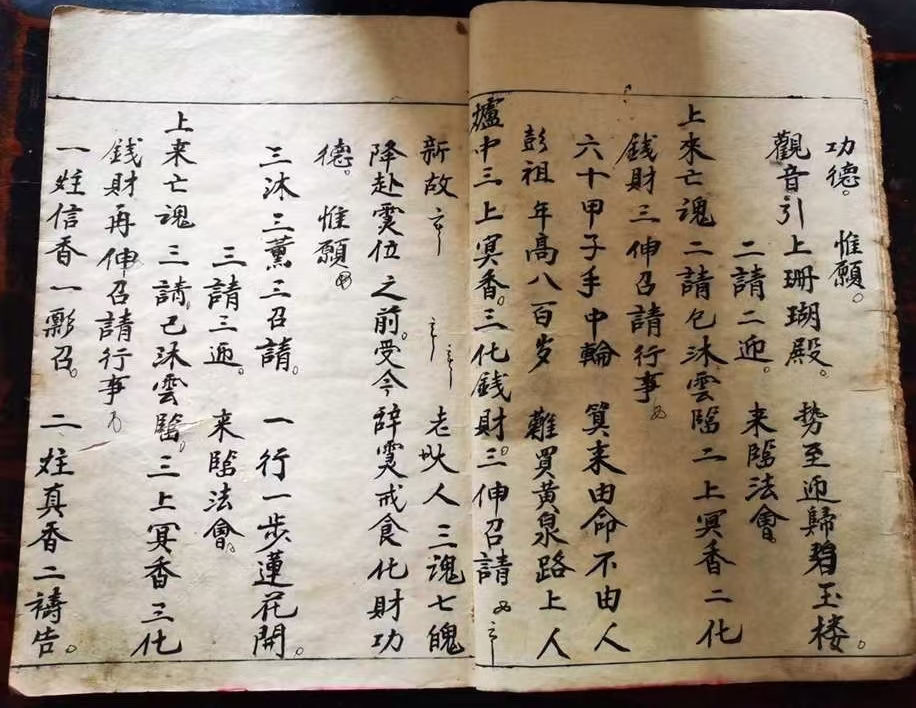 功德。 惟願。
觀音引上珊瑚殿。 势至迎歸碧玉楼。
二請二迎。 来臨法會。
上來亡魂二請已沐雲臨二上冥香二化
錢財三伸召請行事
六十甲子手中輪 算来由命不由人
彭祖年高八百岁 難買黄泉路上人
爐中三上冥香。三化錢財。三伸召請
新故 老 人三魂七魄
降赴霊位之前。受今辞霊戒食化財功
德。 惟願
三沐三薰三召請。 一行一步蓮花開。
三請三迎。 来臨法會。
上来亡魂三請已沐雲臨。三上冥香三化
錢財再伸召請行事
一炷信香一 召。 二炷真香二禱告。